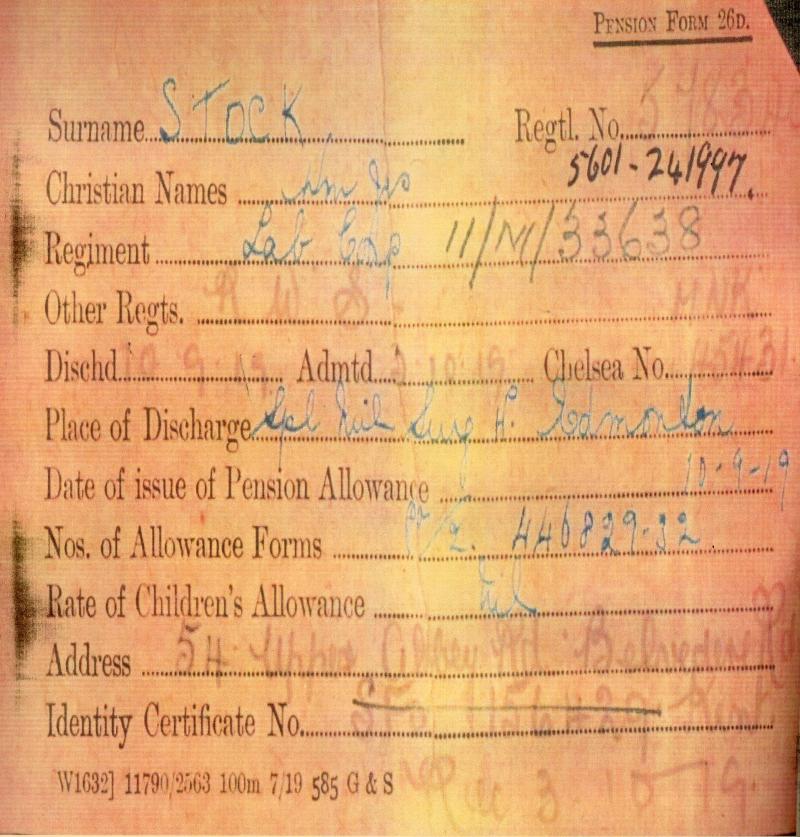 PENSION FORM 26D.
Surname STOCK Regtl. No.
5601-241997.
Christian Names Wm Jas
Regiment Lab Corp 11/M/33638
Other Regts. R W S.
Dischd. 10 9 19 Admtd. 3.10.19 Chelsea No.
Place of Discharge Spl Mil Surg H. Edmonton
Date of issue of Pension Allowance 10-9-19
Nos. of Allowance Forms 446829-32.
Rate of Children's Allowance Nil
Address 54 Upper Abbey Rd. Belvedere
Identity Certificate No. Kent
W1632] 11790/2563 100m 7/19 585 G & S
Rec 3.10.19.